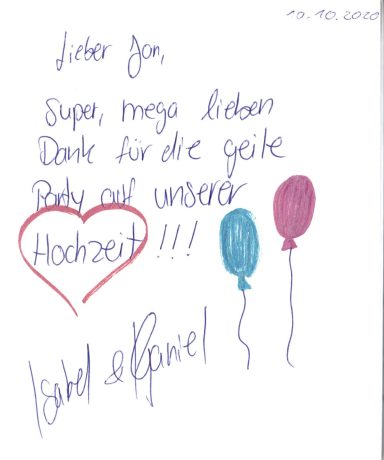 10.10.2020
Lieber Jan,
Super, mega lieben
Dank für die geile
Party auf unserer
Hochzeit!!!
Isabel & Daniel